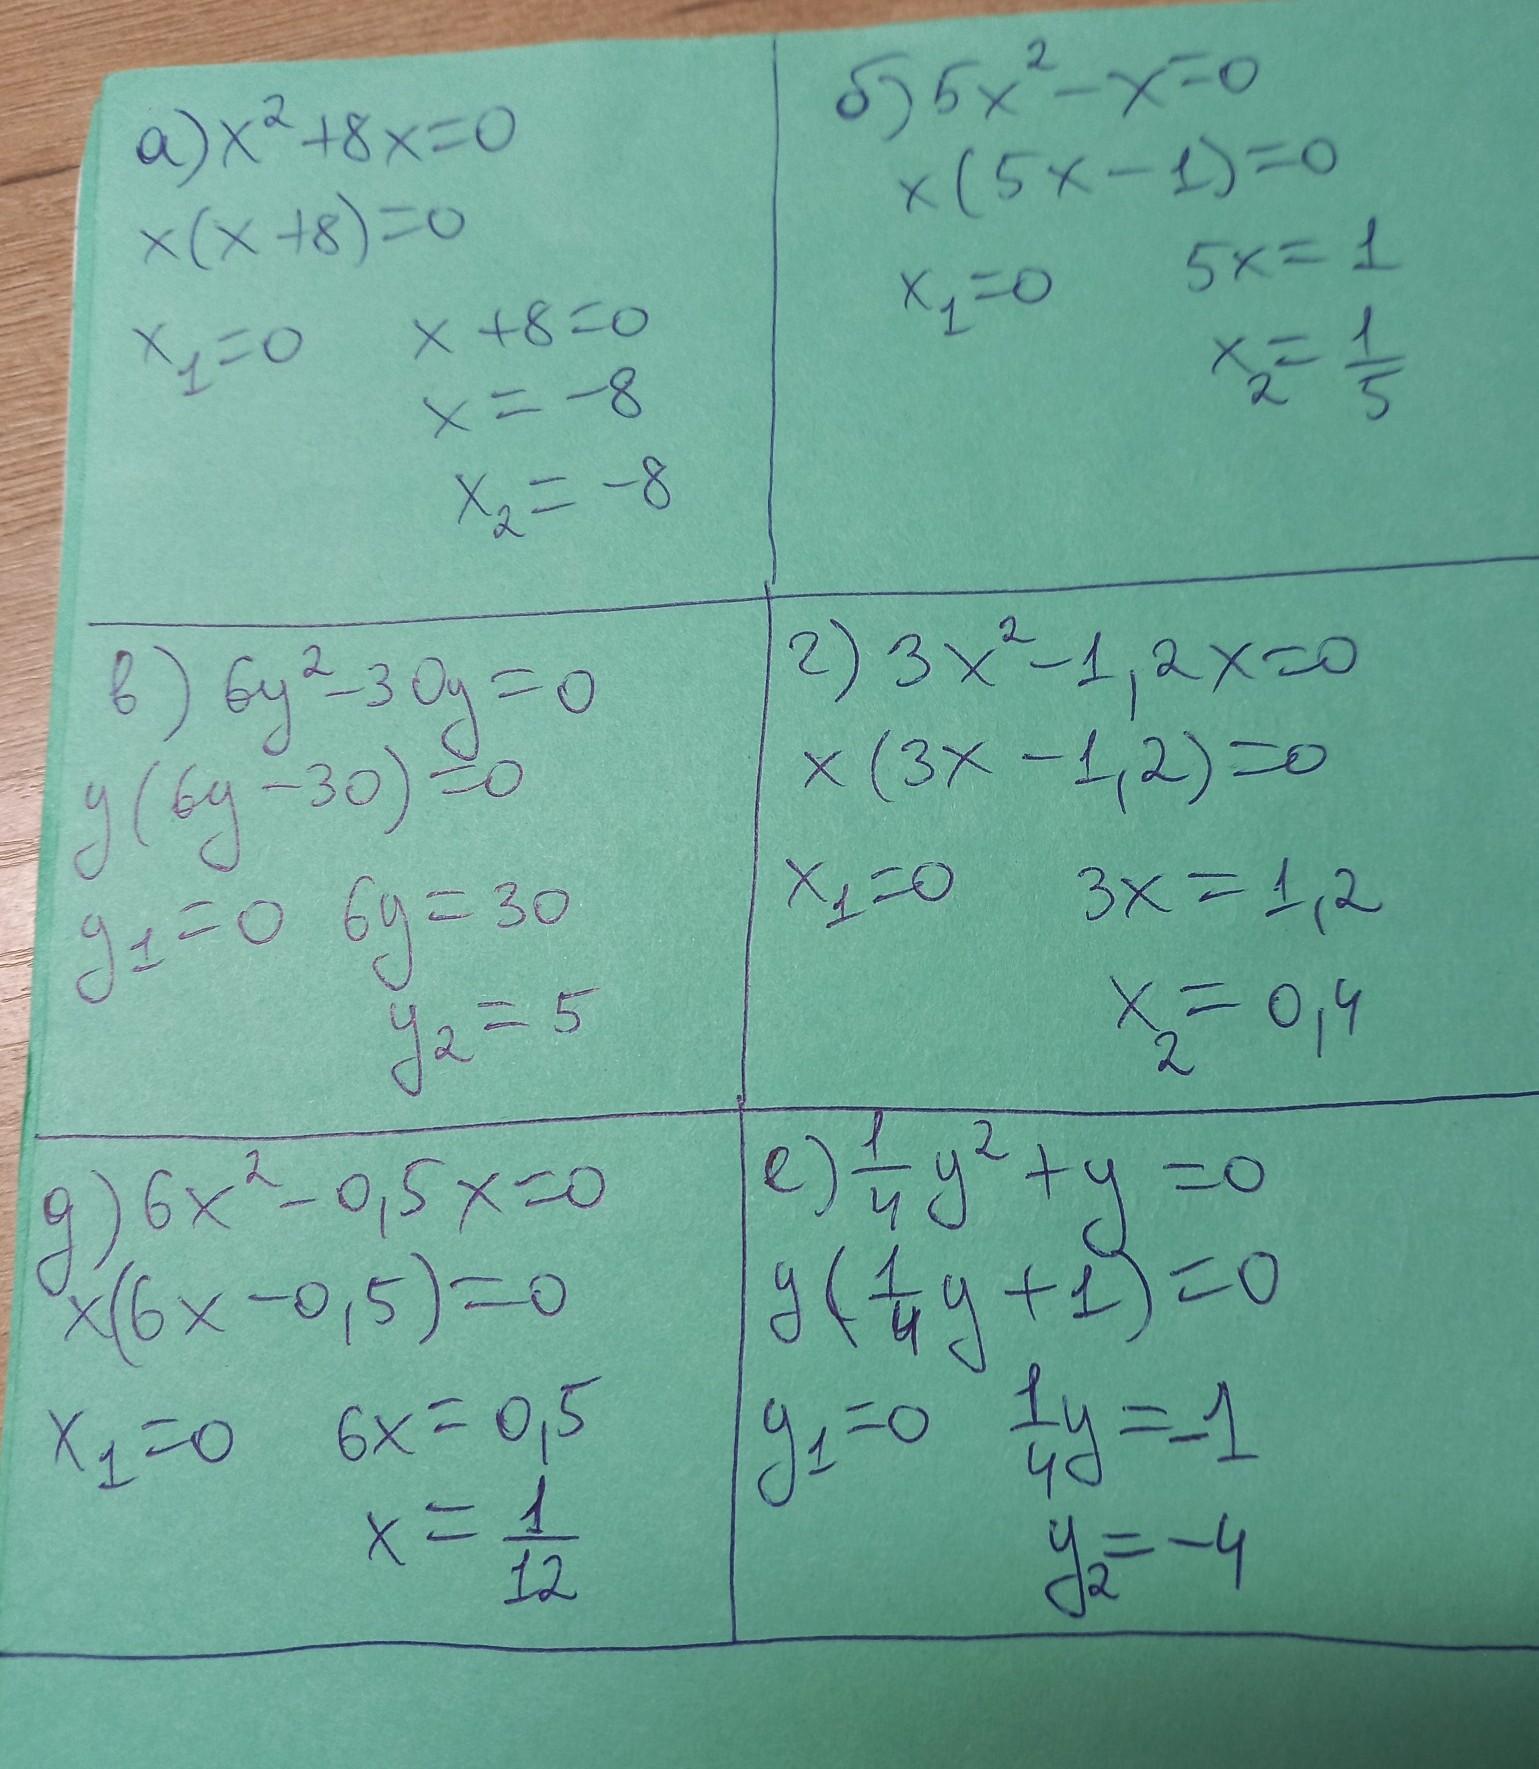 а) x²+8x=0
x(x+8)=0
x₁=0 x+8=0
x=-8
x₂=-8
б) 5x²-x=0
x(5x-1)=0
x₁=0 5x=1
x₂=1/5
в) 6y²-30y=0
y(6y-30)=0
y₁=0 6y=30
y₂=5
г) 3x²-1,2x=0
x(3x-1,2)=0
x₁=0 3x=1,2
x₂=0,4
д) 6x²-0,5x=0
x(6x-0,5)=0
x₁=0 6x=0,5
x=1/12
е) 1/4y²+y=0
y(1/4y+1)=0
y₁=0 1/4y=-1
y₂=-4